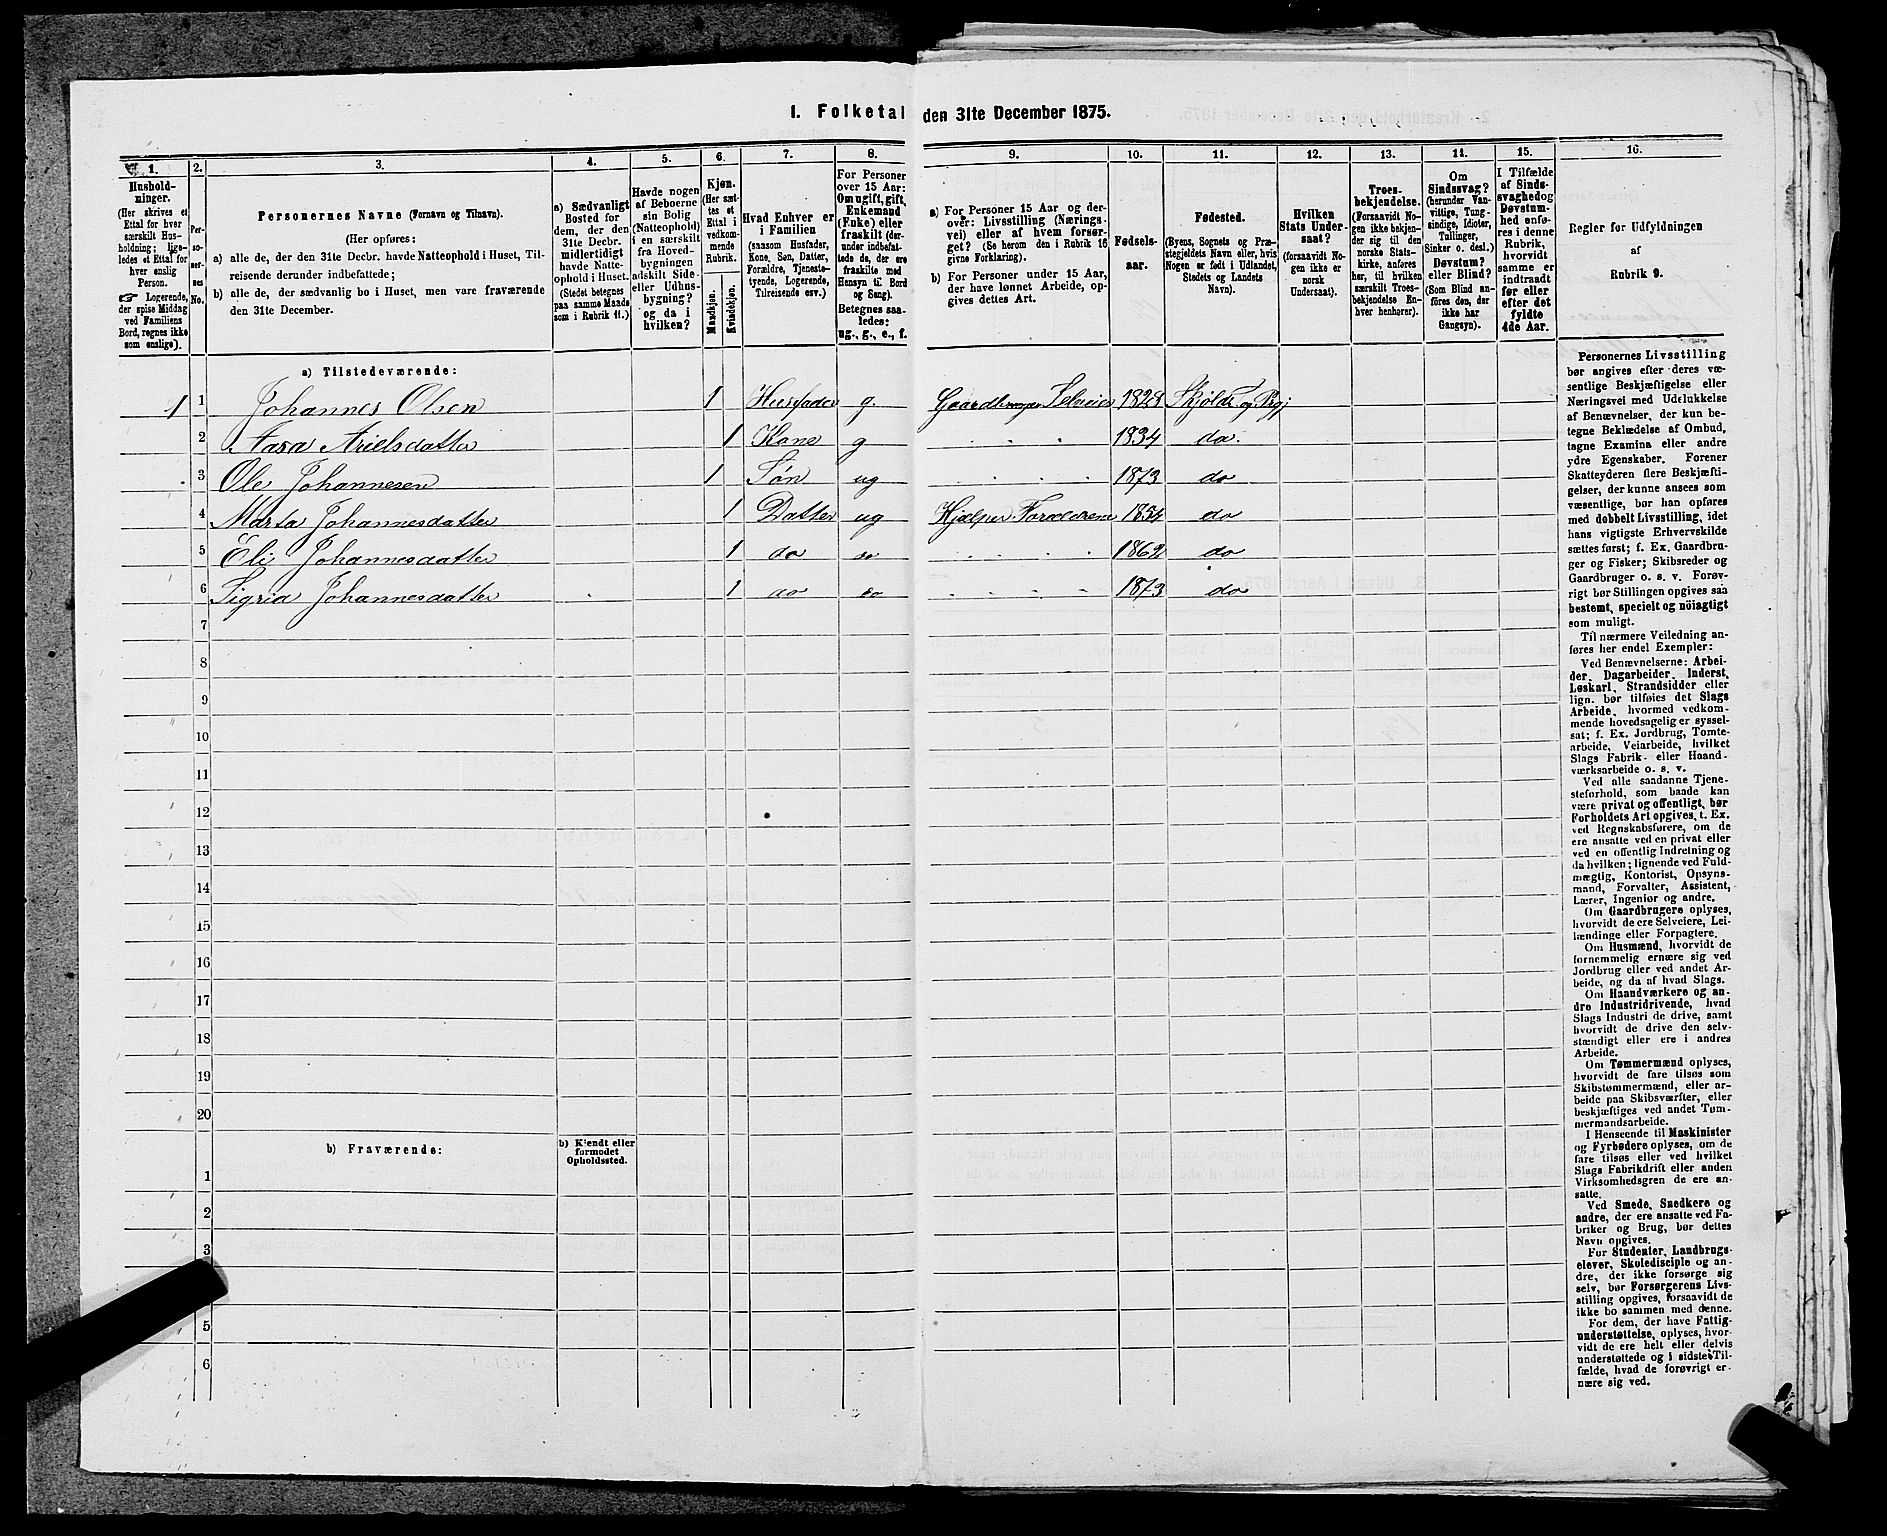 1. Folketal den 31te December 1875.
1. 2. 3. 4. 5. 6. 7. 8. 9. 10. 11. 12. 13. 14. 15. 16.
Hushold-
ninger.
(Her skrives et
Ettal for hver
særskilt Hus-
holdning; lige-
ledes et Ettal for
hver enslig
Person.
☞ Logerende,
der spise Middag
ved Familiens
Bord, regnes ikke
som enslige).
Per-
so-
ner-
nes
No.
Personernes Navne (Fornavn og Tilnavn).
(Her opføres:
a) alle de, der den 31te Decbr. havde Natteophold i Huset, Til-
reisende derunder indbefattede;
b) alle de, der sædvanlig bo i Huset, men vare fraværende
den 31te December.
a) Sædvanligt
Bosted for
dem, der den
31te Decbr.
midlertidigt
havde Natte-
ophold i Huset.
(Stedet betegnes
paa samme Maade
som i Rubrik 11.)
Havde nogen
af Beboerne
sin Bolig
(Natteophold)
i en særskilt
fra Hoved-
bygningen
adskilt Side-
eller Udhus-
bygning?
og da i
hvilken?
Kjøn.
(Her sæt-
tes et
Ettal i
vedkom-
mende
Rubrik.
Mandkjøn.
Kvindekjøn.
Hvad Enhver er
i Familien
(saasom Husfader,
Kone, Søn, Datter,
Forældre, Tjeneste-
tyende, Logerende,
Tilreisende osv.)
For Personer
over 15 Aar:
Om ugift, gift,
Enkemand
(Enke) eller
fraskilt (der-
under indbefat-
tede de, der ere
fraskilte med
Hensyn til Bord
og Seng).
Betegnes saa-
ledes:
ug., g., e., f.
a) For Personer 15 Aar og der-
over: Livsstilling (Nærings-
vei) eller af hvem forsør-
get? (Se herom den i Rubrik 16
givne Forklaring).
b) For Personer under 15 Aar,
der have lønnet Arbeide, op-
gives dettes Art.
Fødsels-
aar.
Fødested.
(Byens, Sognets og Præ-
stegjeldets Navn eller, hvis
Nogen er født i Udlandet,
Stedets og Landets
Navn).
Hvilken
Stats Under-
saat?
(forsaavidt No-
gen ikke er
norsk
Undersaat).
Troes-
bekjendelse.
(Forsaavidt No-
gen ikke bekjen-
der sig til den
norske Stats-
kirke, anføres
her, til hvilken
særskilt Troes-
bekjendelse En-
hver henhører).
Om
Sindssvag?
(herunder Van-
vittige, Tung-
sindige, Idioter,
Tullinger,
Sinker o. desl.)
Døvstum?
eller Blind?
(Som Blind an-
føres den, der
ikke har
Gangsyn).
I Tilfælde
af Sinds-
svaghed og
Døvstum-
hed anfø-
res i denne
Rubrik,
hvorvidt
samme er
indtraadt
før eller
efter det
fyldte
4de Aar.
Regler for Udfyldningen
af
Rubrik 9.
a) Tilstedeværende:
1 1 Johannes Olsen 1 Husfader g. Gaardbruger Selveier 1828 Skjold S. og Prgj
2 Aasa Arielsdatter 1 Kone g 1834 do.
3 Ole Johannesen 1 Søn ug 1873 do
4 Marta Johannesdatter 1 Datter ug Hjelper Forældrene 1854 do
5 Eli Johannesdatter 1 do do 1862 do
6 Sigrid Johannesdatter 1 do do 1873 do
7
8
9
10
11
12
13
14
15
16
17
18
19
20
b) Fraværende:
b) Kjendt eller
formodet
Opholdssted.
1
2
3
5
6
Personernes Livsstilling
bør angives efter deres væ-
sentlige Beskjæftigelse eller
Næringsvei med Udelukkelse
af Benævnelser, der kun be-
tegne Beklædelse af Ombud,
tagne Examina eller andre
ydre Egenskaber. Forener
Skatteyderen flere Beskjæfti-
gelser, der kunne ansees som
væsentlige, bør han opføres
med dobbelt Livsstilling, idet
hans vigtigste Erhvervskilde
sættes først; f. Ex. Gaardbru-
ger og Fisker; Skibsreder og
Gaardbruger o. s. v. Forøv-
rigt bør Stillingen opgives saa
bestemt, specielt og nöiagtigt
som muligt.
Til nærmere Veiledning an-
føres her endel Exempler:
Ved Benævnelserne: Arbei-
der, Dagarbeider, Inderst,
Løskarl, Strandsidder eller
lign. bør tilføies det Slags
Arbeide, hvormed vedkom-
mende hovedsagelig er syssel-
sat; f. Ex. Jordbrug, Tomte-
arbeide, Veiarbeide, hvilket
Slags Fabrik- eller Haand-
værksarbeide o. s. v.
Ved alle saadanne Tjene-
steforhold, som baade kan
være privat og offentligt, bør
Forholdets Art opgives, t. Ex.
ved Regnskabsførere, om de
ere ansatte ved en privat eller
ved en offentlig Indretning og
da hvilken; lignende ved Fuld-
mægtig, Kontorist, Opsyns-
mand, Forvalter, Assistent,
Lærer, Ingeniør og andre.
Om Gaardbrugere oplyses,
hvorvidt de ere Selveiere, Lei-
lændinge eller Forpagtere.
Om Husmænd, hvorvidt de
fornemmelig ernære sig ved
Jordbrug eller ved andet Ar-
beide, og da af hvad Slags.
Om Haandværkere og an-
dre Industridrivende, hvad
Slags Industri de drive, samt
hvorvidt de drive den selv-
stændigt eller ere i andres
Arbeide.
Om Tømmermænd oplyses,
hvorvidt de fare tilsøs som
Skibstømmermænd, eller ar-
beide paa Skibsværfter, eller
beskjæftiges ved andet Tøm-
mermandsarbeide.
I Henseende til Maskinister
og Fyrbødere oplyses, om de
fare tilsøs eller ved hvilket
Slags Fabrikdrift eller anden
Virksomhedsgren de ere an-
satte.
Ved Smede, Snedkere og
andre, der ere ansatte ved Fa-
briker og Brug, bør dettes
Navn opgives.
For Studenter, Landbrugs-
elever, Skoledisciple og an-
dre, der ikke forsørge sig
selv, bør Forsørgerens Livs-
stilling opgives, forsaavidt de
ikke bo sammen med denne.
For dem, der have Fattig-
understøttelse, oplyses, hvor-
vidt de ere helt eller delvis
understøttede og i sidste Til-
fælde, hvad de forøvrigt er-
nære sig ved.